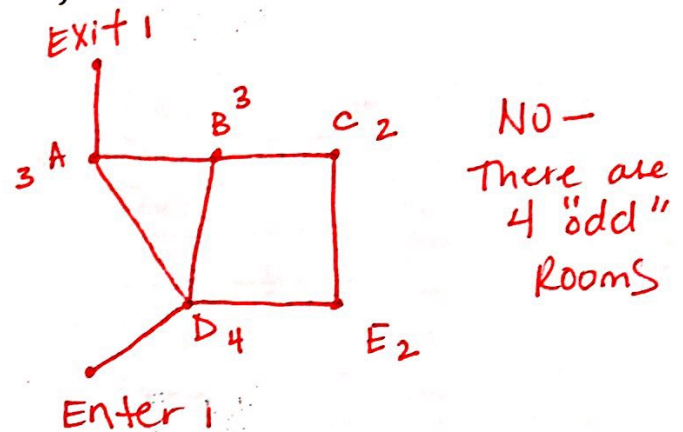 Exit 1
B 3
C 2
3 A
D 4
E 2
Enter 1
NO —
There are
4 "odd"
Rooms